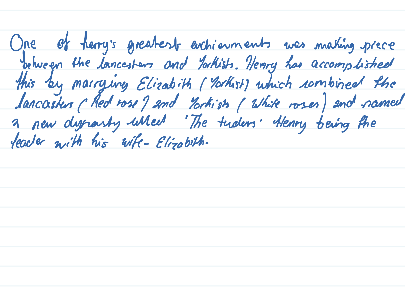 One of henry's greatest achievments was making piece
between the lancasters and Yorkists. Henry has accomplished
this by marrying Elizabith (Yorkist) which combined the
lancasters (Red rose) and Yorkish (White roses) and named
a new dynasty called 'The tudors' Henry being the
leader with his wife - Elizabith.